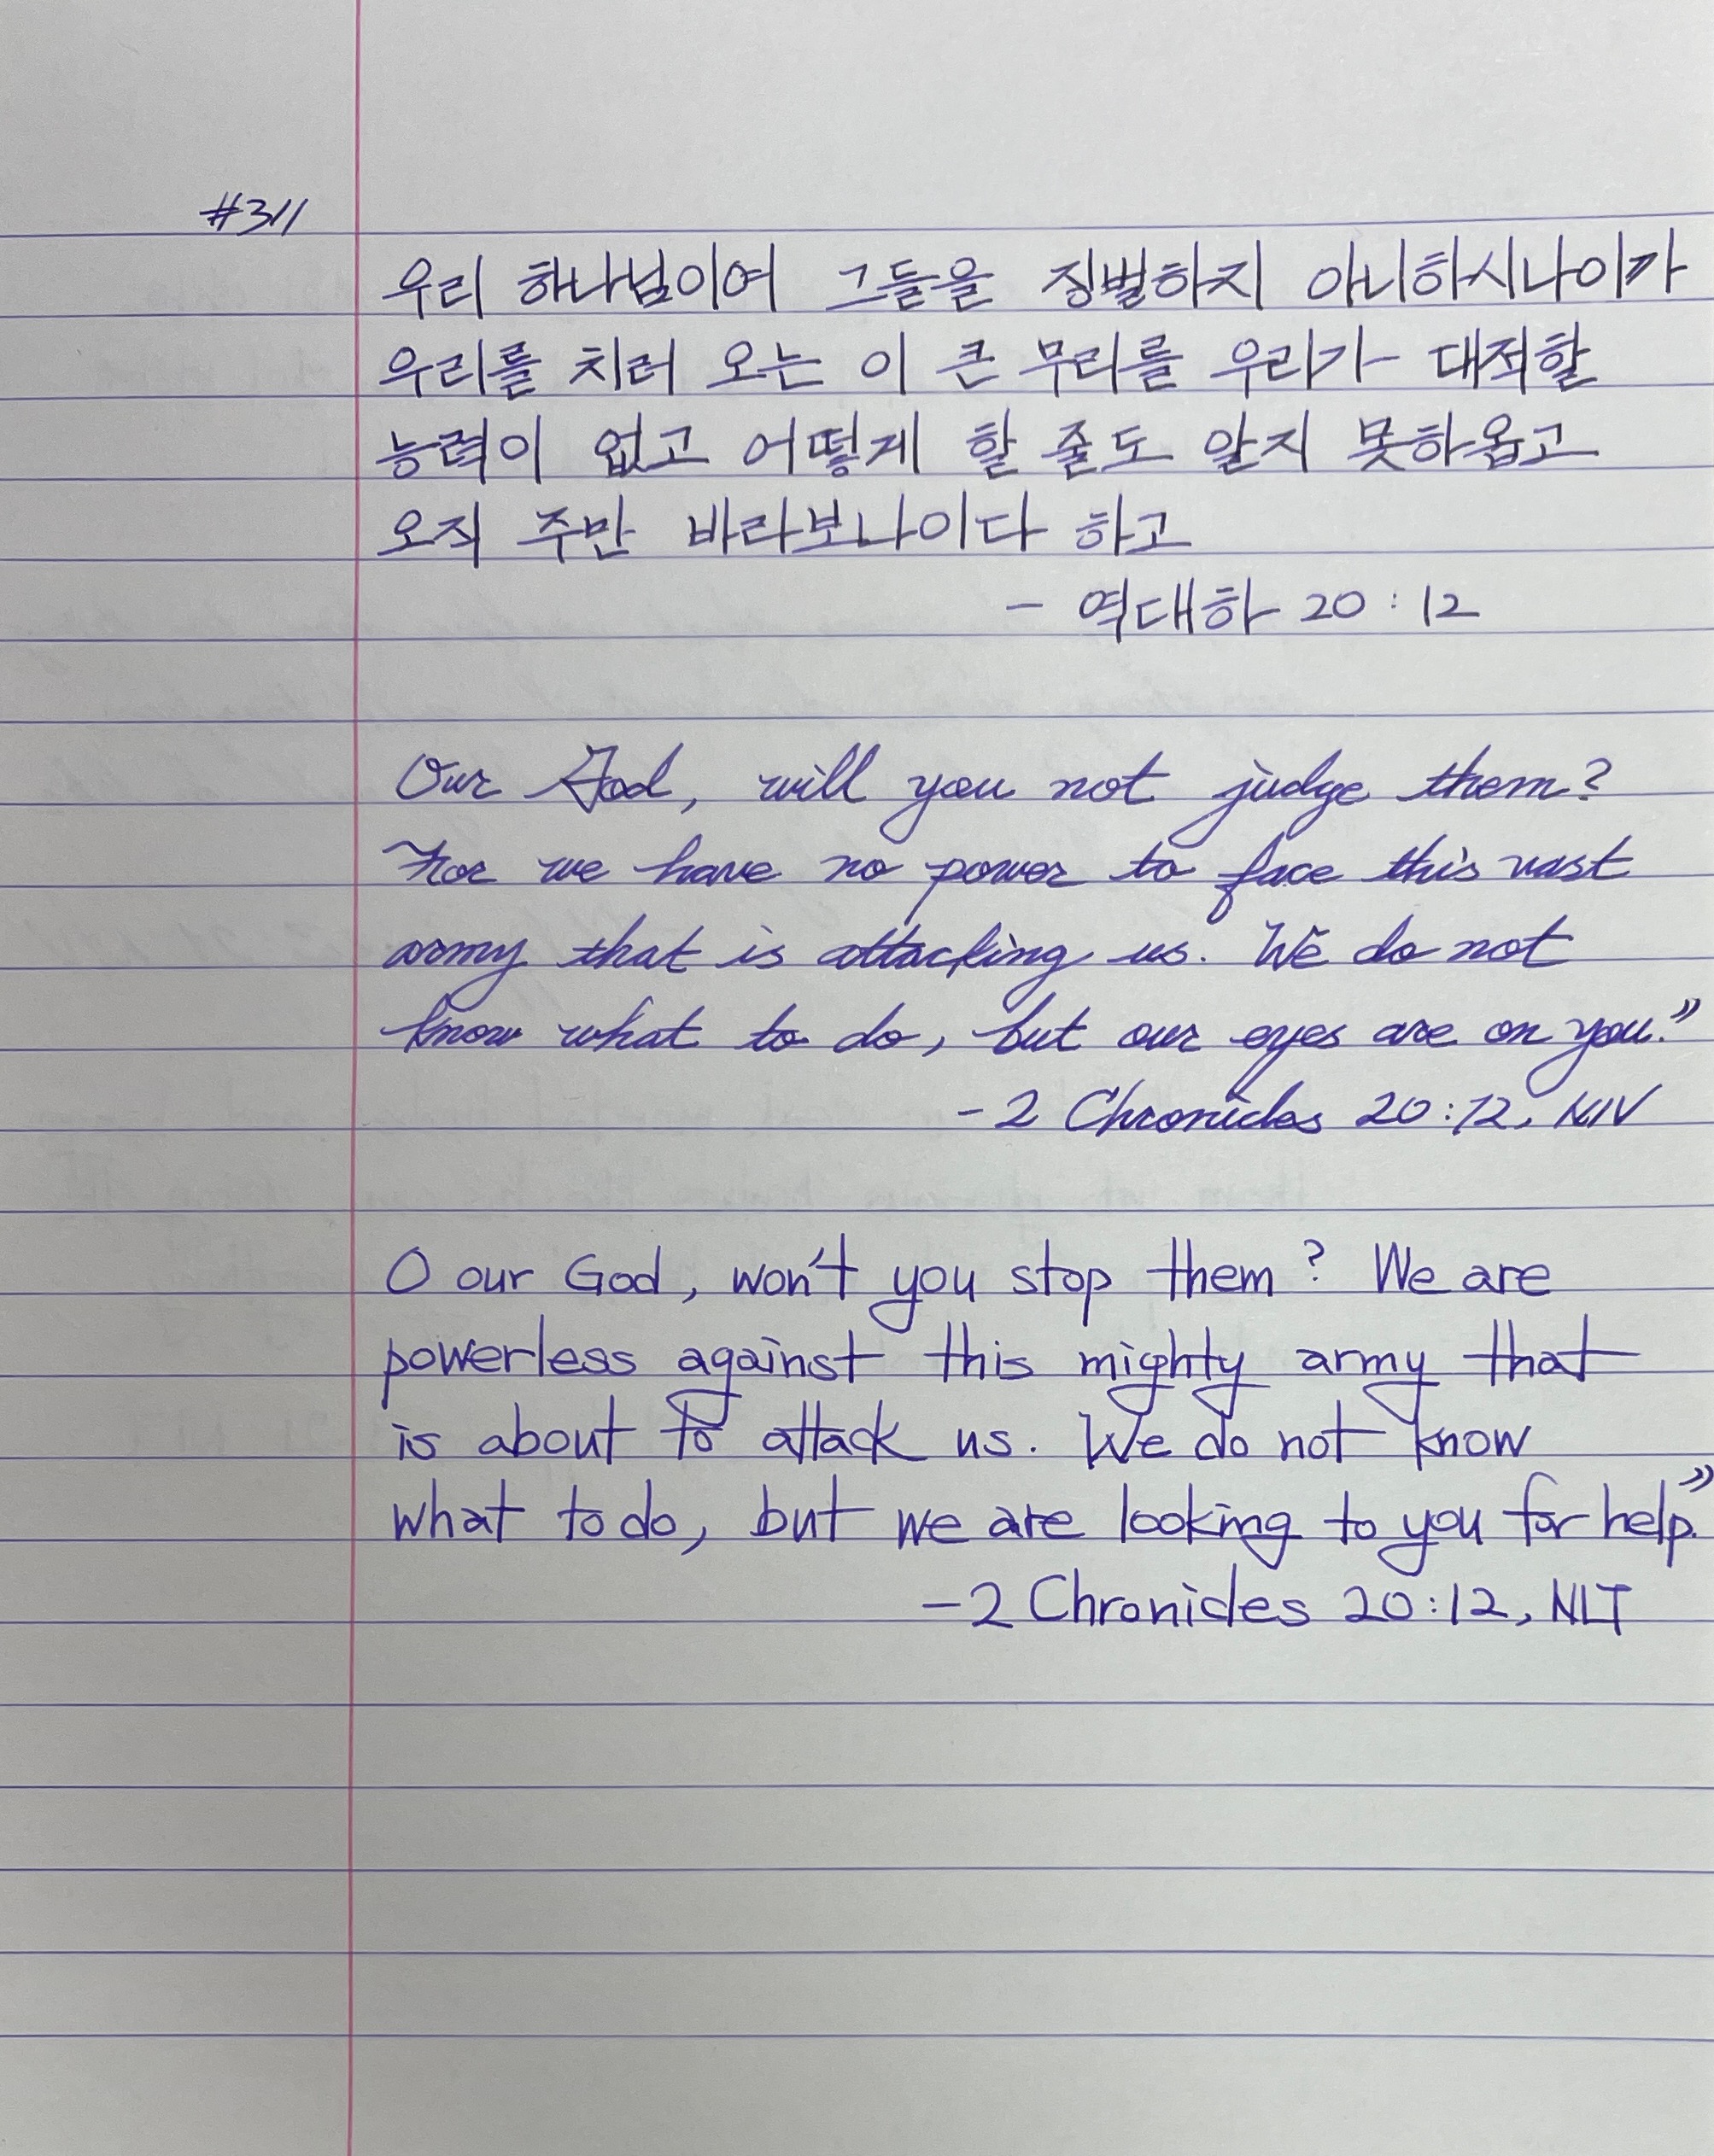 #311
우리 하나님이여 그들을 징벌하지 아니하시나이까
우리를 치러 오는 이 큰 무리를 우리가 대적할
능력이 없고 어떻게 할 줄도 알지 못하옵고
오직 주만 바라보나이다 하고
- 역대하 20:12
Our God, will you not judge them?
For we have no power to face this vast
army that is attacking us. We do not
know what to do, but our eyes are on you."
- 2 Chronicles 20:12, NIV
O our God, won't you stop them? We are
powerless against this mighty army that
is about to attack us. We do not know
what to do, but we are looking to you for help."
- 2 Chronicles 20:12, NLT